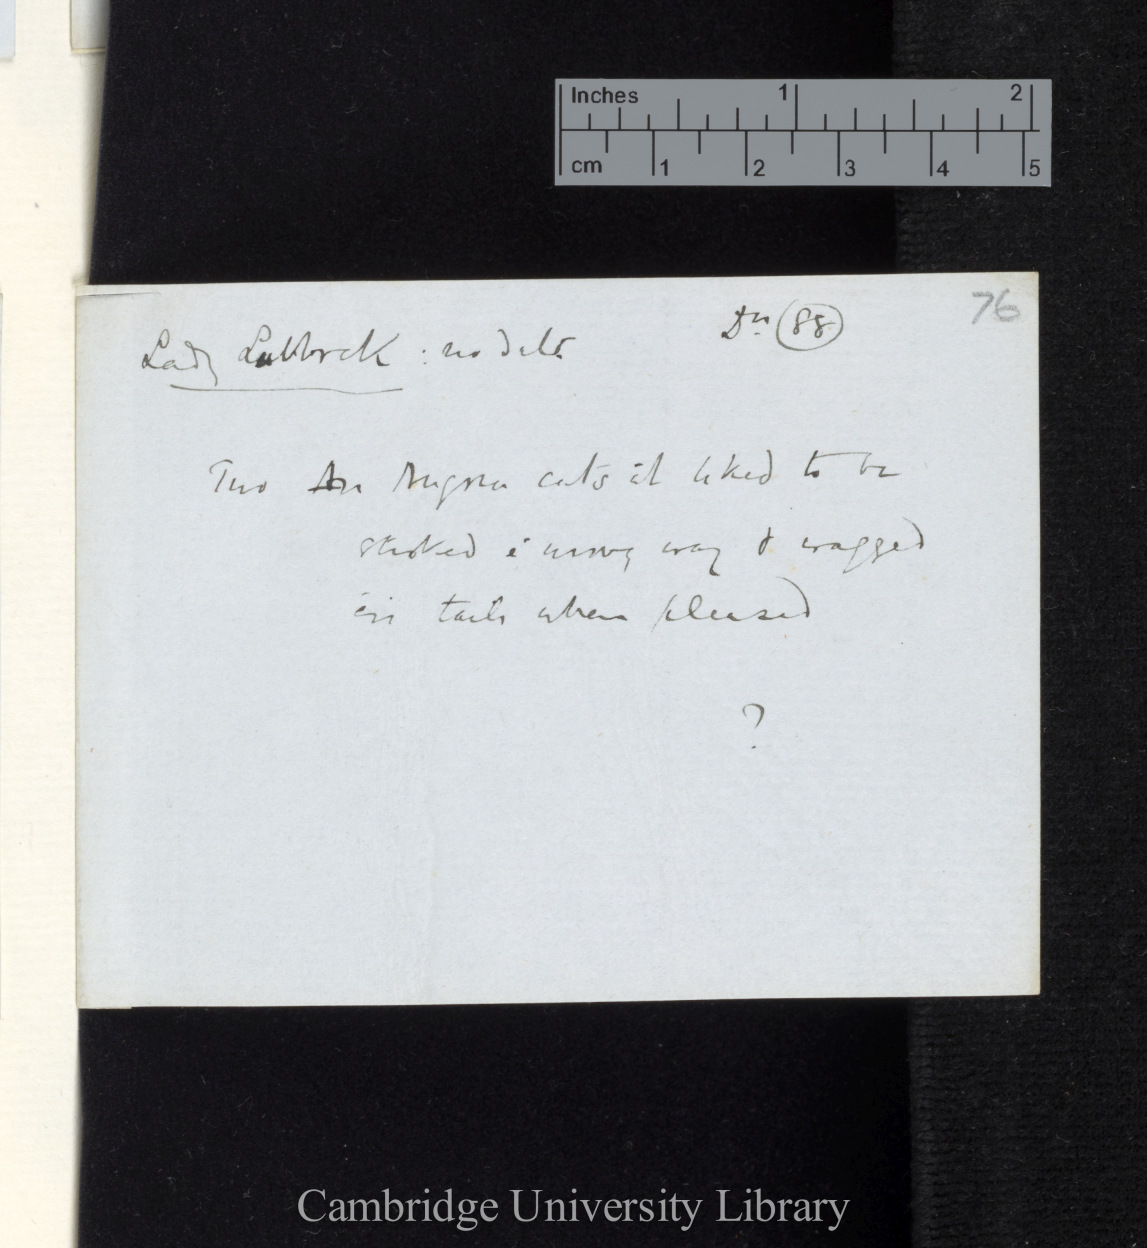 Inches 1 2
cm 1 2 3 4 5
76
Lady Lubbock : no date
Dn 88
Two An cats it liked to be
stroked i wrong way & wagged
eir tails when pleased
?
Cambridge University Library